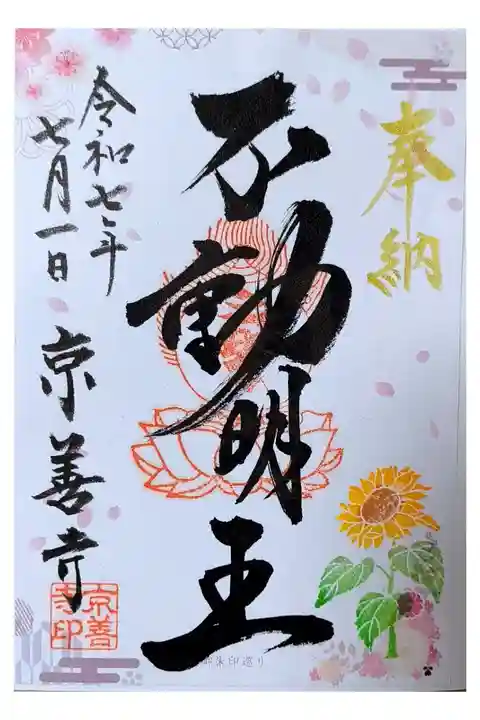 奉納
不動明王
令和七年
七月一日
京善寺
京善
寺印
朱印巡り